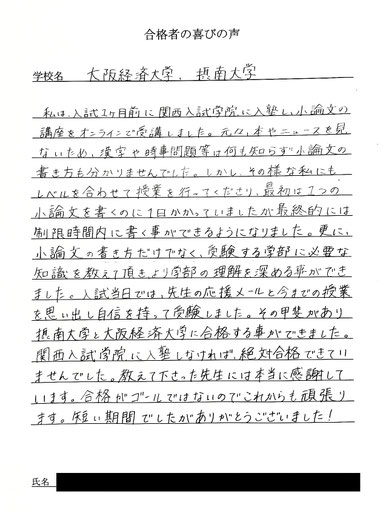 合格者の喜びの声
学校名 大阪経済大学, 摂南大学
私は、入試1ヶ月前に関西入試学院に入塾し、小論文の
講座をオンラインで受講しました。元々、本やニュースを見
ないため、漢字や時事問題等は何も知らず小論文の
書き方も分かりませんでした。しかし、その様な私にも
レベルを合わせて授業を行ってくださり、最初は1つの
小論文を書くのに1日かかっていましたが最終的には
制限時間内に書く事ができるようになりました。更に、
小論文の書き方だけでなく、受験する学部に必要な
知識を教えて頂きより学部の理解を深める事ができ
ました。入試当日では、先生の応援メールと今までの授業
を思い出し自信を持って受験しました。その甲斐があり
摂南大学と大阪経済大学に合格する事ができました。
関西入試学院に入塾しなければ、絶対合格できてい
ませんでした。教えて下さった先生には本当に感謝して
います。合格がゴールではないのでこれからも頑張り
ます。短い期間でしたがありがとうございました!
氏名